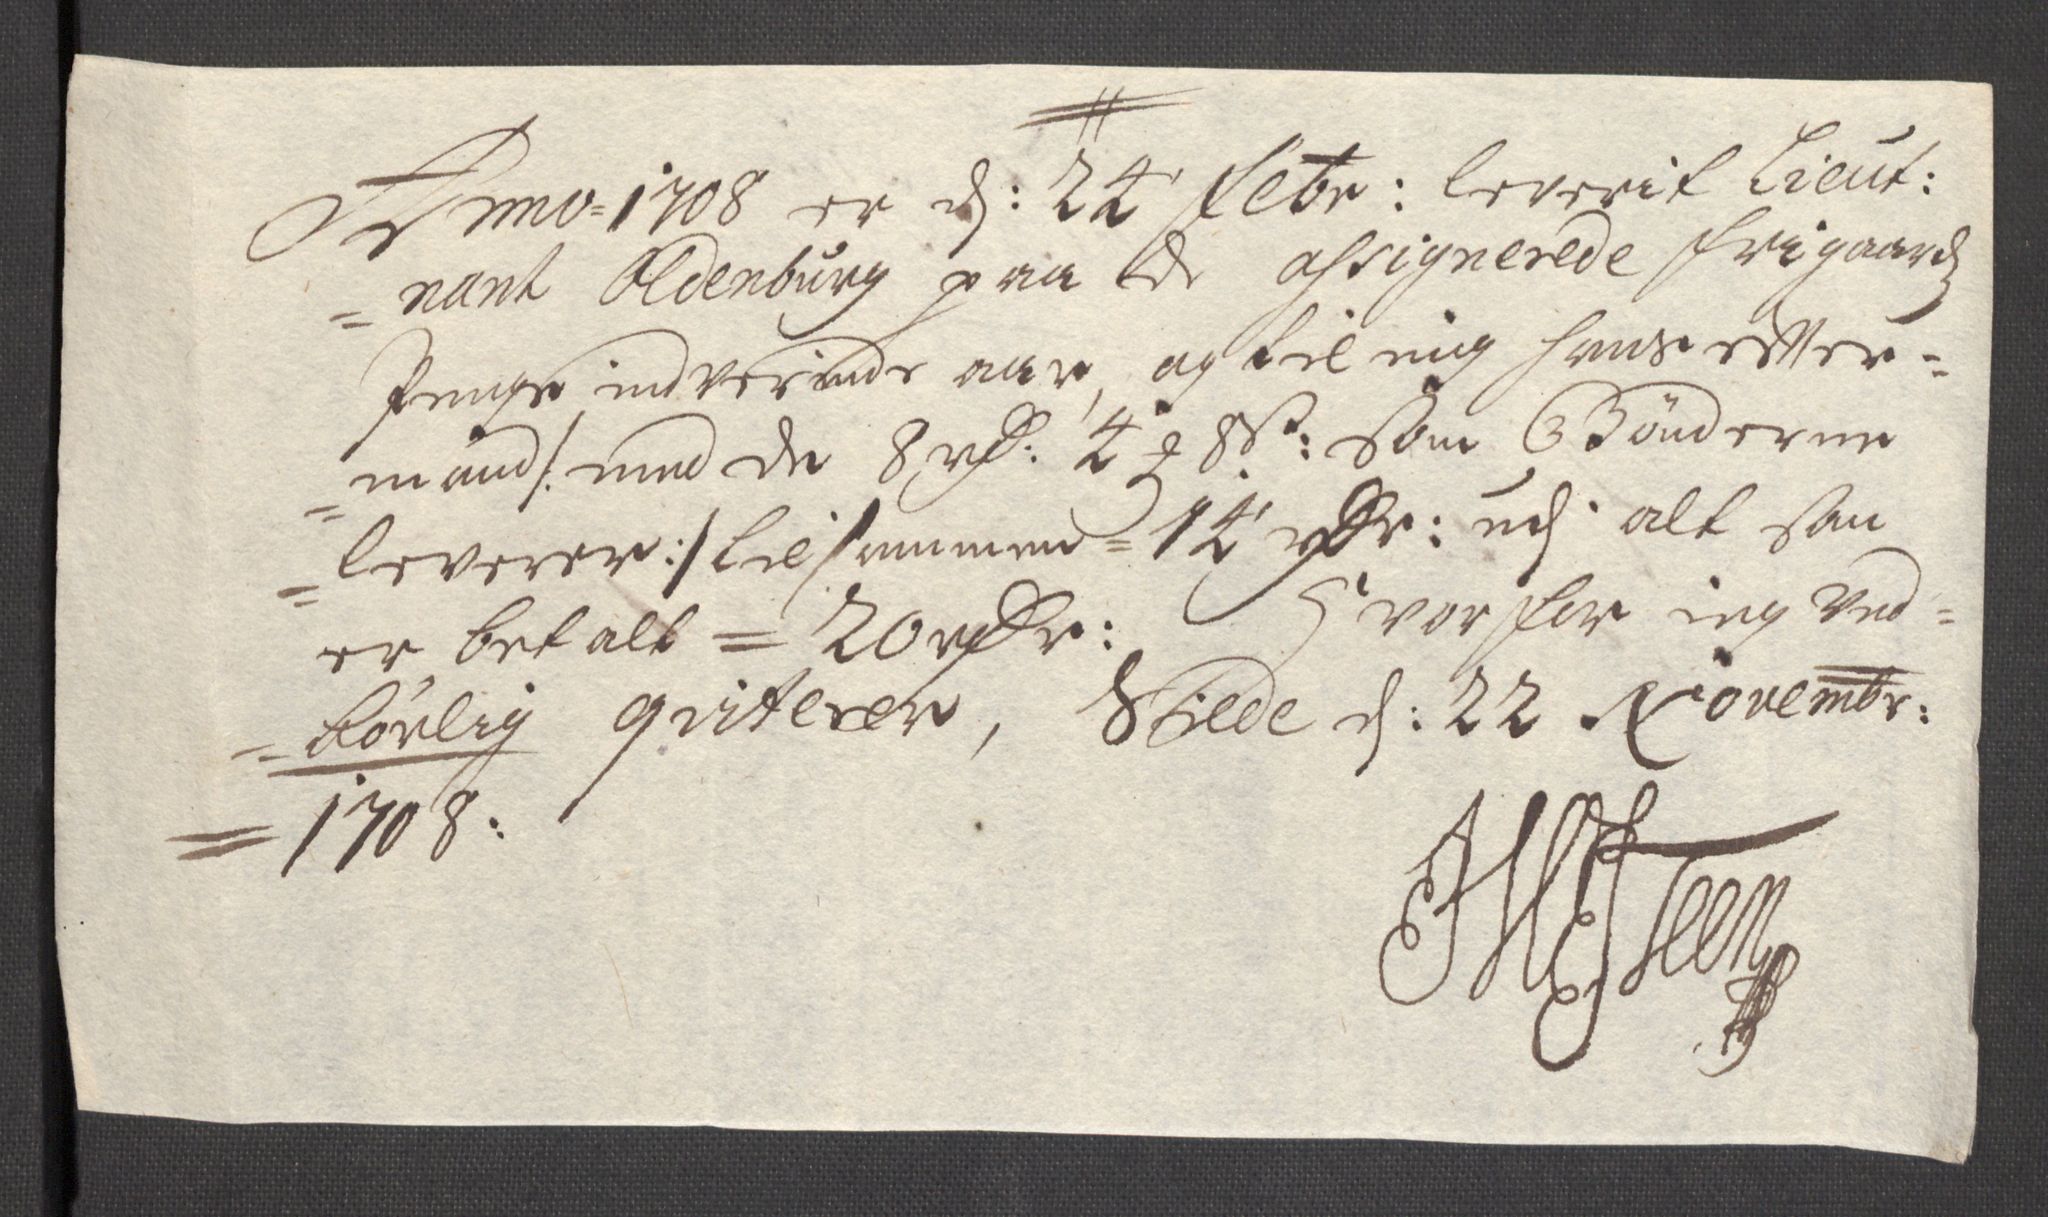 Anno 1708 er d: 24 Febr: leverit Lieut:
= nant Oldenburg paa de assignerede frigaards
Penge indverende aar, og til mig hans effter=
= mand /: med de 8 rdr: 4 ₰ 8 s: som Bönderne
= leverer :/ til sammen = 14 rdr: udj alt saa
er betalt = 20 rdr: Hvorfor ieg ved=
= börlig qviterer, d: 22 Novembr:
= 1708: